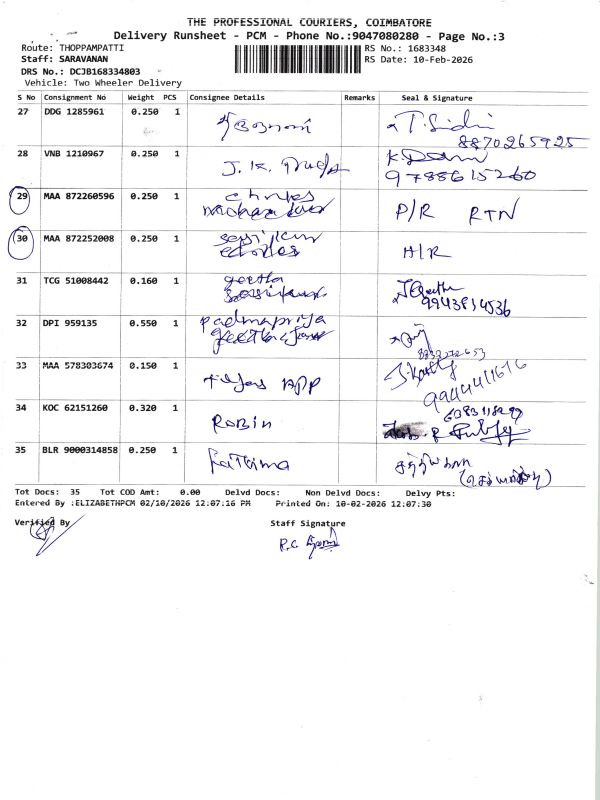 THE PROFESSIONAL COURIERS, COIMBATORE
Delivery Runsheet - PCM - Phone No.:9047080280 - Page No.:3
Route: THOPPAMPATTI RS No.: 1683348
Staff: SARAVANAN RS Date: 10-Feb-2026
DRS No.: DCJB168334803
Vehicle: Two Wheeler Delivery
S No Consignment No Weight PCS Consignee Details Remarks Seal & Signature
27 DDG 1285961 0.250 1
8870265925
28 VNB 1210967 0.250 1 J. K.
9788615260
29 MAA 872260596 0.250 1 P/R RTN
30 MAA 872252008 0.250 1 H/R
31 TCG 51008442 0.160 1 geetha
9943814536
32 DPI 959135 0.550 1 padmapriya
33 MAA 578303674 0.150 1 APP
9944411616
34 KOC 62151260 0.320 1 ROBIN
35 BLR 9000314858 0.250 1 Fathima
Tot Docs: 35 Tot COD Amt: 0.00 Delvd Docs: Non Delvd Docs: Delvy Pts:
Entered By :ELIZABETHPCM 02/10/2026 12:07:16 PM Printed On: 10-02-2026 12:07:30
Verified By Staff Signature